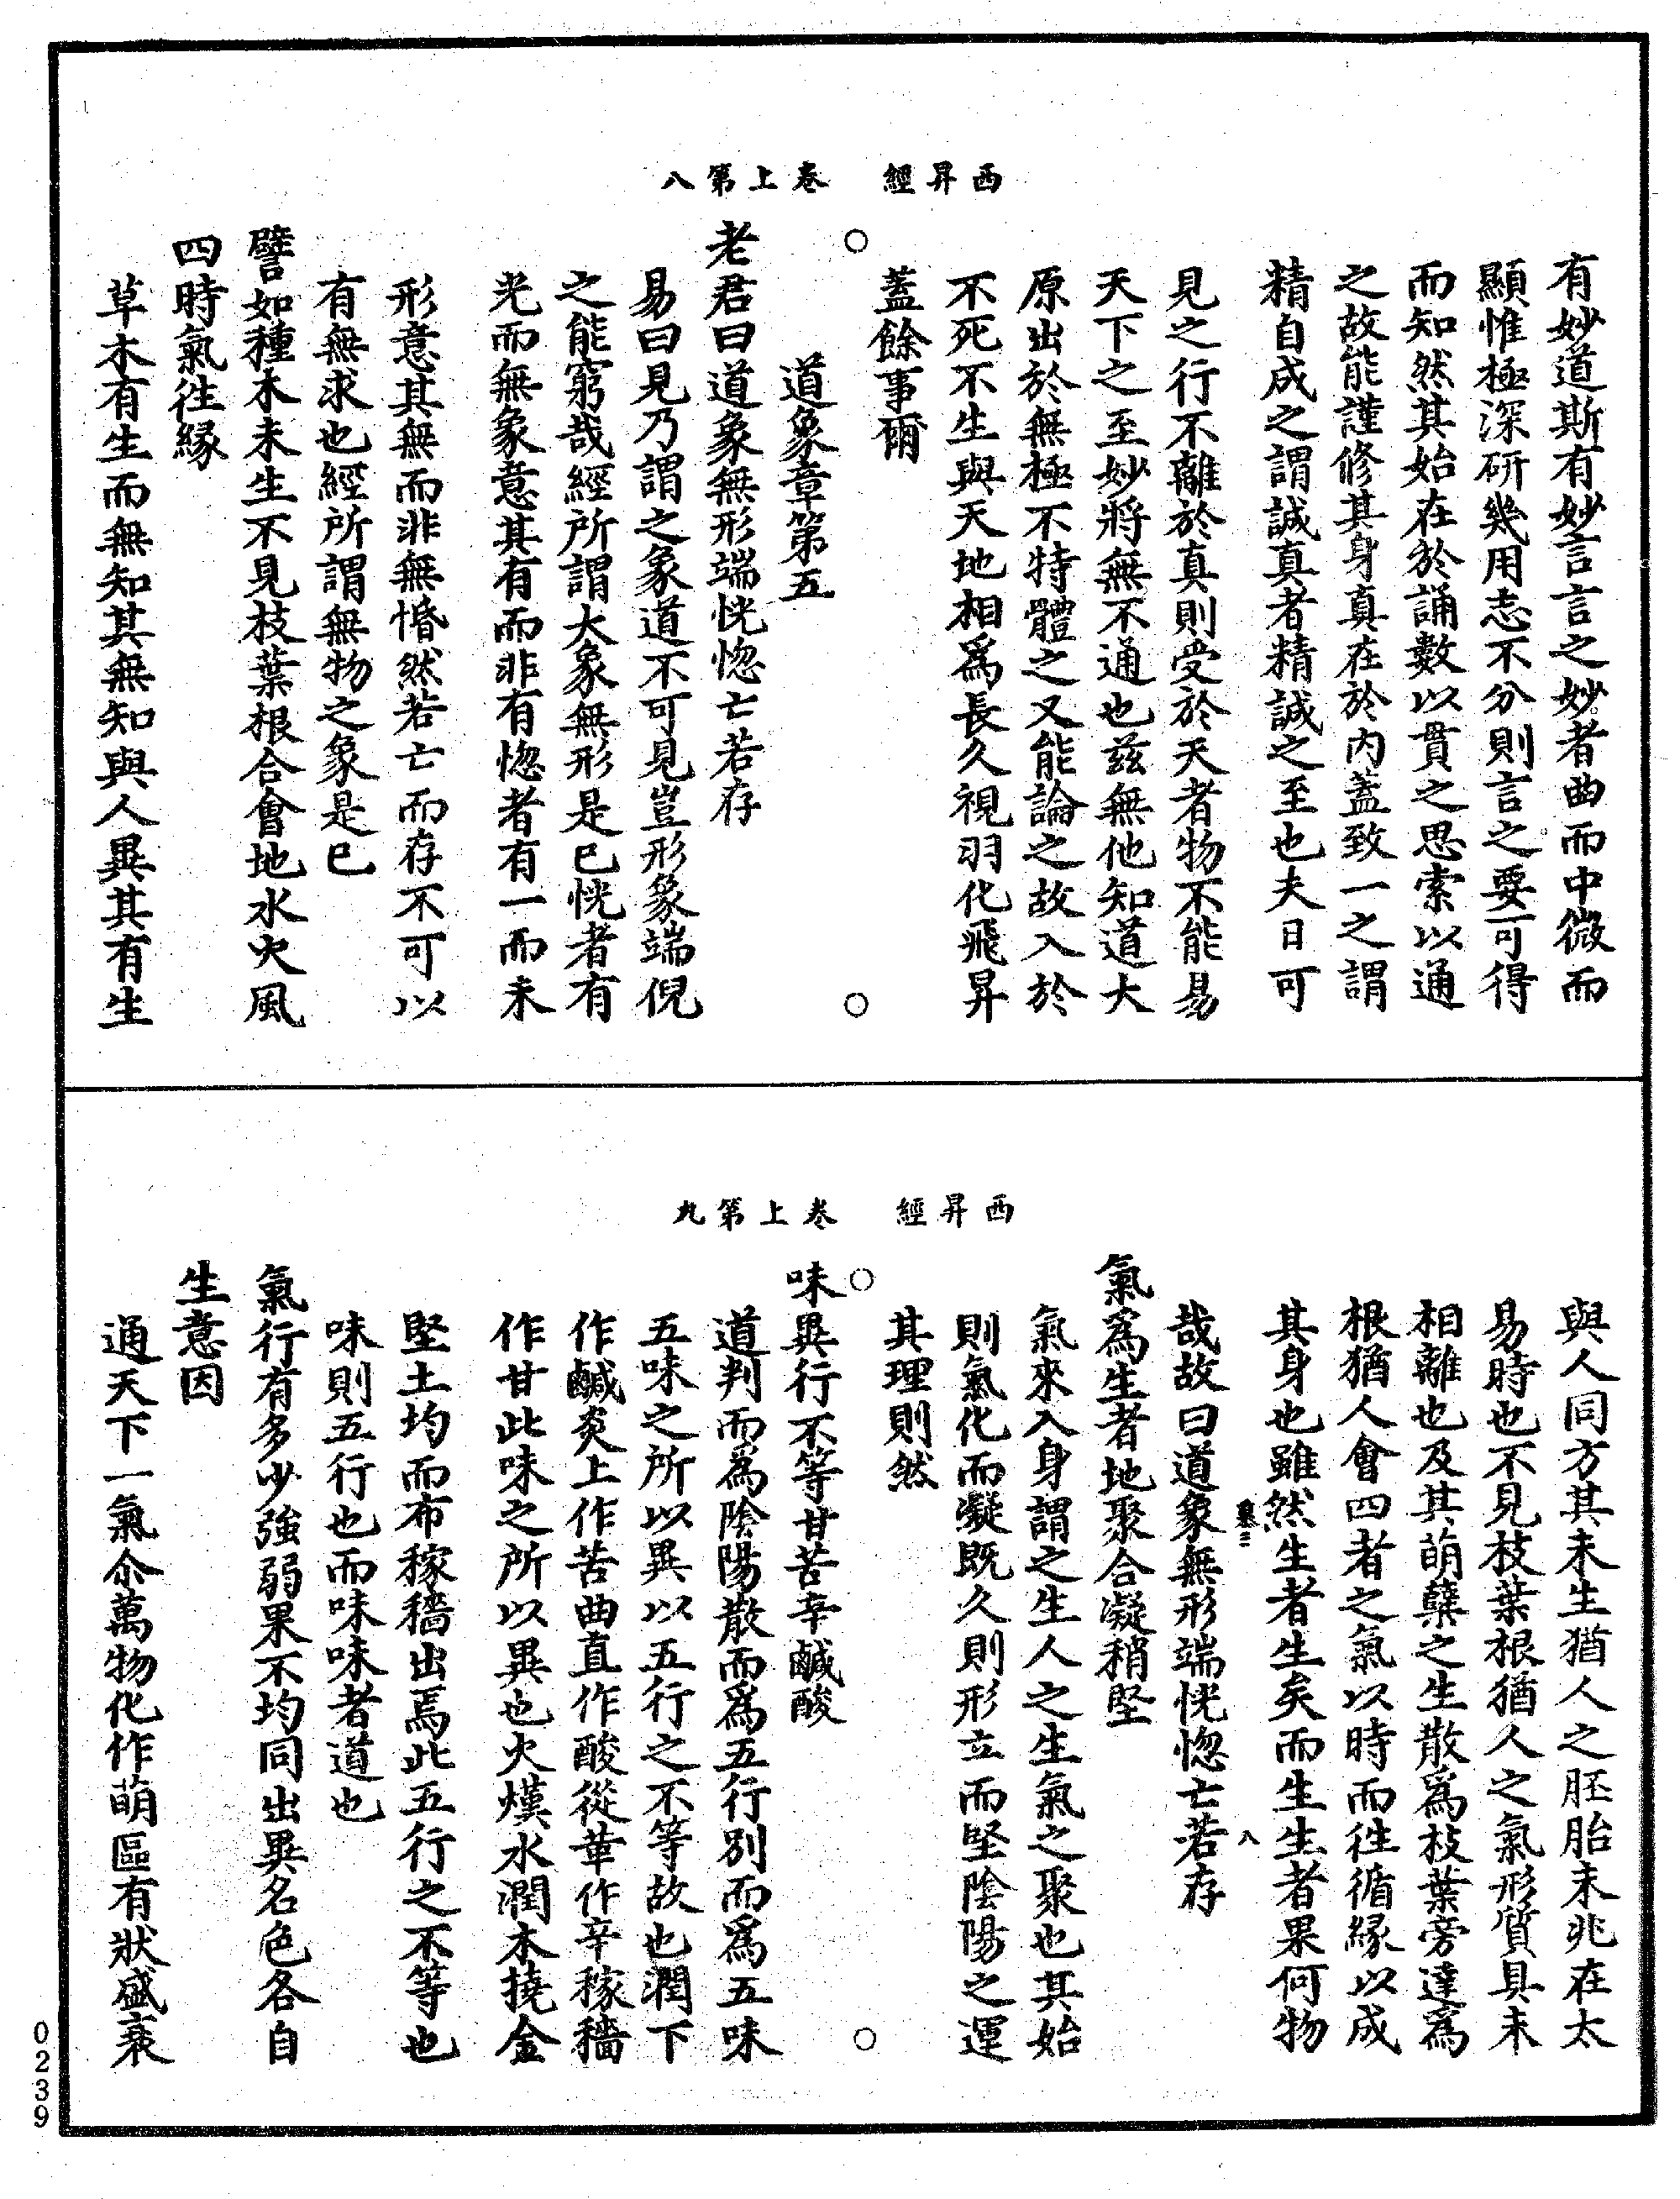 西昇經　卷上第八
有妙道斯有妙言言之妙者曲而中微而
顯惟極深研幾用志不分則言之要可得
而知然其始在於誦數以貫之思索以通
之故能謹修其身真在於內蓋致一之謂
精自成之謂誠真者精誠之至也夫日可
見之行不離於真則受於天者物不能易
天下之至妙將無不通也茲無他知道大
原出於無極不特體之又能論之故入於
不死不生與天地相爲長久視羽化飛昇
蓋餘事爾
道象章第五
老君曰道象無形端恍惚亡若存
易曰見乃謂之象道不可見豈形象端倪
之能窮哉經所謂大象無形是已恍者有
光而無象意其有而非有惚者有一而未
形意其無而非無惛然若亡而存不可以
有無求也經所謂無物之象是已
譬如種木未生不見枝葉根合會地水火風
四時氣往緣
草木有生而無知其無知與人異其有生
西昇經　卷上第九
與人同方其未生猶人之胚胎未兆在太
易時也不見枝葉根猶人之氣形質具未
相離也及其萌蘖之生散爲枝葉旁達爲
根猶人會四者之氣以時而往循緣以成
其身也雖然生者生矣而生生者果何物
哉故曰道象無形端恍惚亡若存
氣爲生者地聚合凝稍堅
氣來入身謂之生人之生氣之聚也其始
則氣化而凝既久則形立而堅陰陽之運
其理則然
味異行不等甘苦辛鹹酸
道判而爲陰陽散而爲五行別而爲五味
五味之所以異以五行之不等故也潤下
作鹹炎上作苦曲直作酸從革作辛稼穡
作甘此味之所以異也火熯水潤木撓金
堅土均而布稼穡出焉此五行之不等也
味則五行也而味味者道也
氣行有多少強弱果不均同出異名色各自
生意因
通天下一氣尒萬物化作萌區有狀盛衰
0239